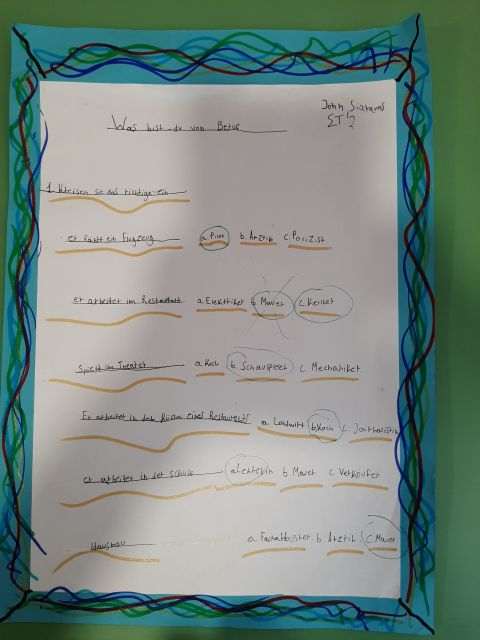 John
ΣΤ'2
Was bist du von Beruf
1. Kreisen sie das richtige ein
er fährt ein Flugzeug a. Pilot b. Arztin c. Polizist
er arbeitet im Restaurant a. Elektriker b. Maurer c. Kellner
Spielt im Theater a. Koch b. Schauspieler c. Mechaniker
Er arbeitet in der Küche eines Restaurants a. Landwirt b. Koch c. Journalistin
er arbeitet in der Schule a. Lehrerin b. Maurer c. Verkäufer
Hausbau a. Facharbeiter b. Arztin c. Maurer